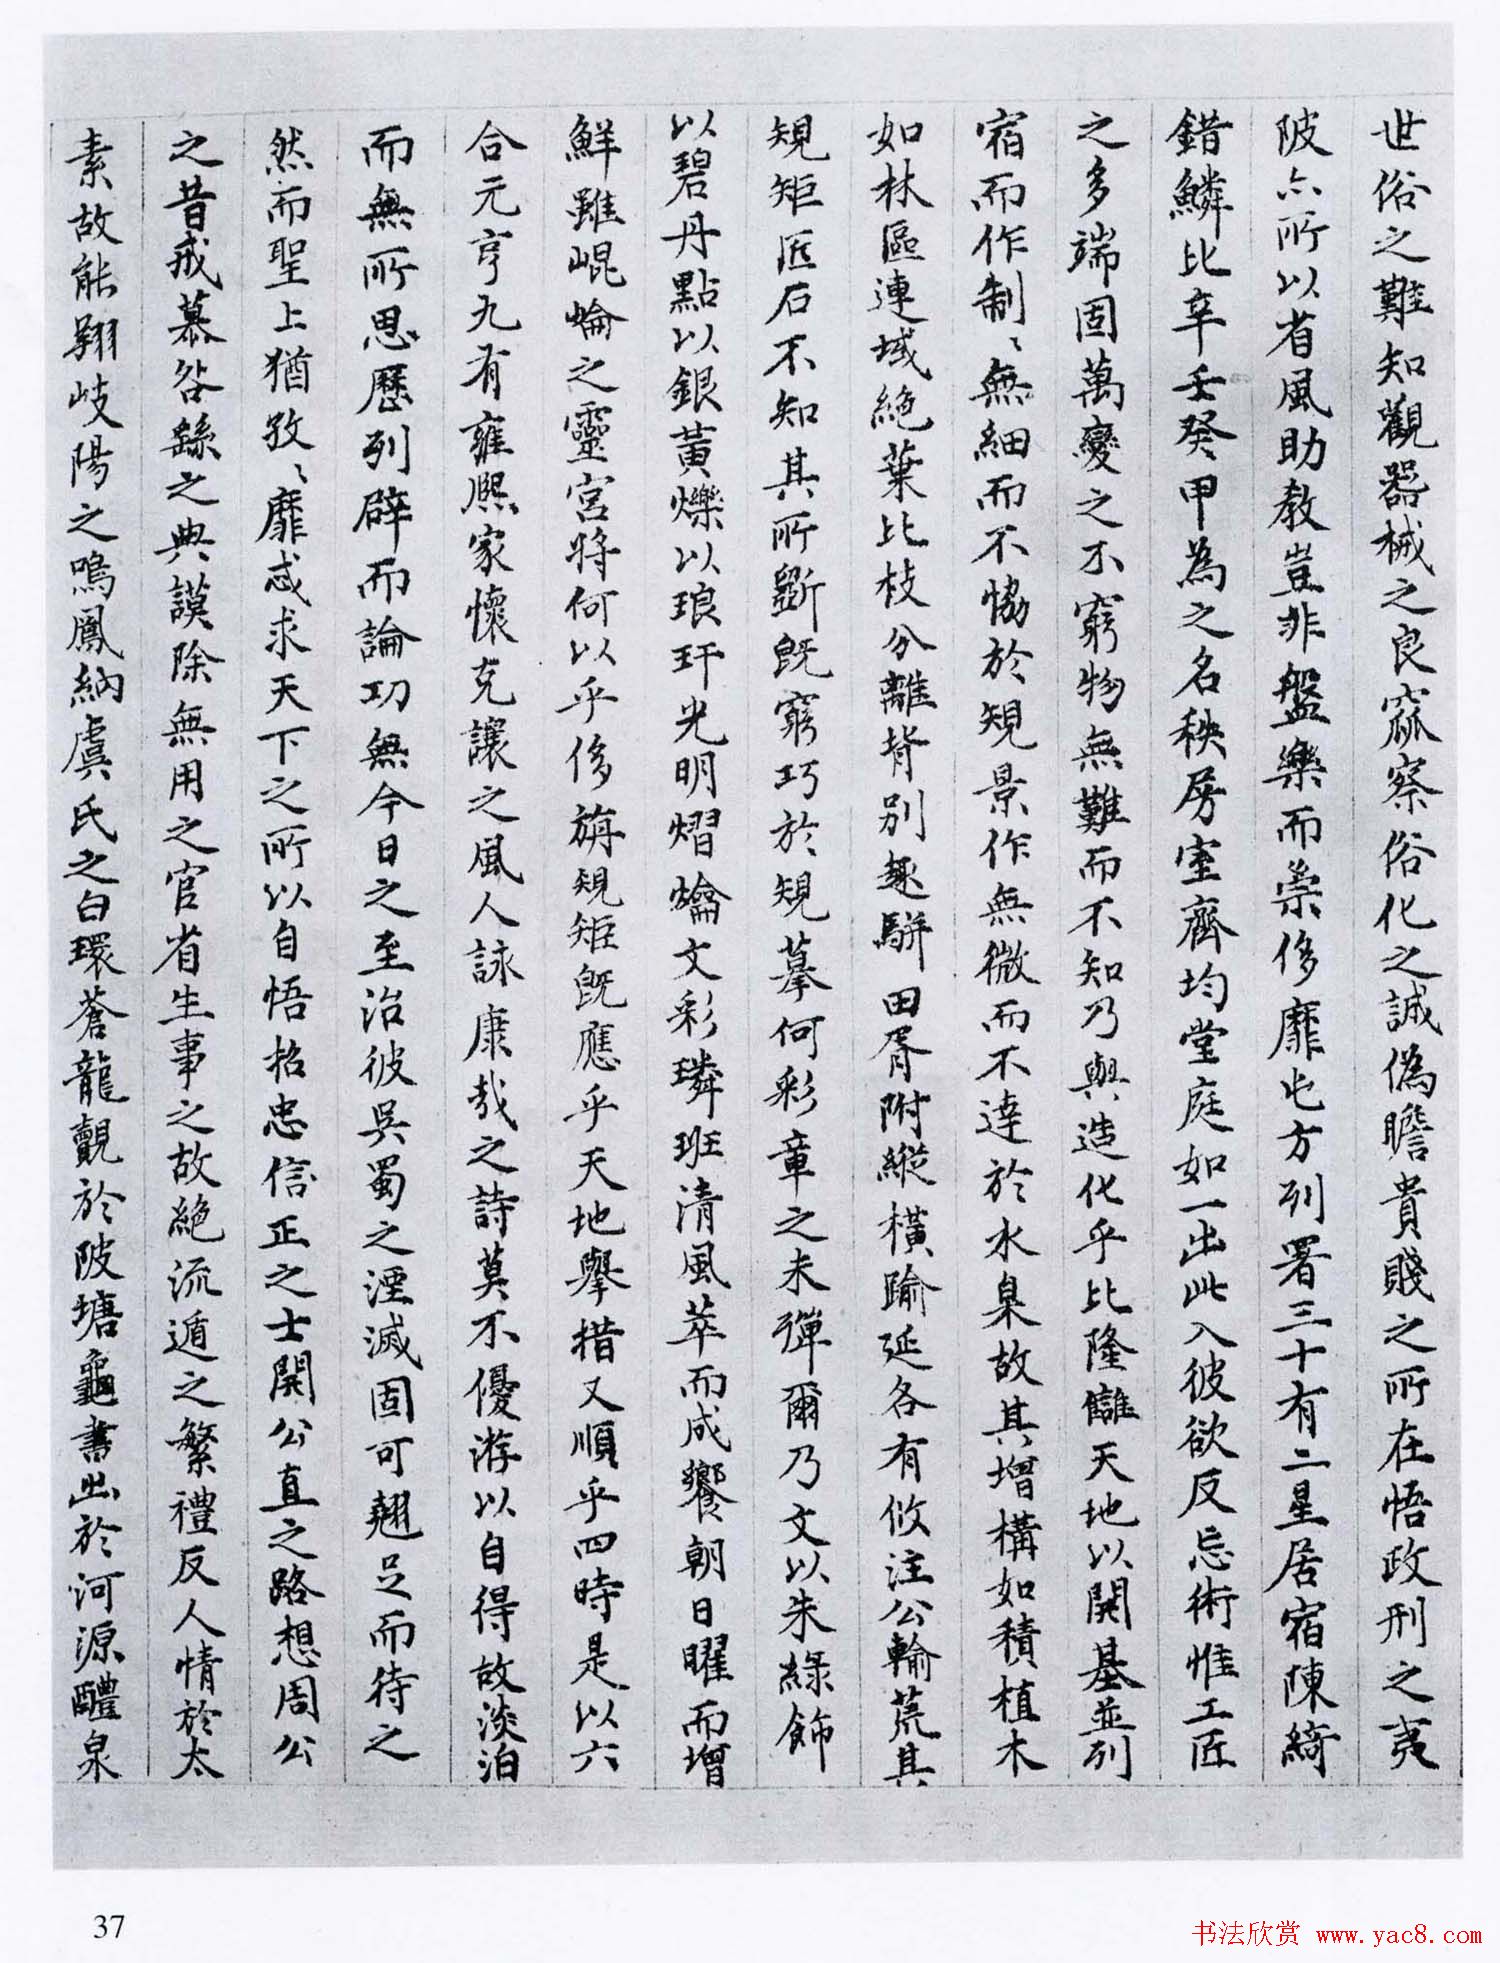 世俗之難知觀器械之良窳察俗化之誠偽瞻貴賤之所在悟政刑之夷
陂亦所以省風助教豈非盤樂而崇侈靡屯方列署三十有二星居宿陳綺
錯鱗比辛壬癸甲為之名秩房室齊均堂庭如一出此入彼欲反忘術惟工匠
之多端固萬變之不窮物無難而不知乃與造化乎比隆讎天地以開基並列
宿而作制〻無細而不協於規景作無微而不達於水臬故其增構如積植木
如林區連域絕葉比枝分離背別趣駢田胥附縱橫踰延各有攸注公輸荒其
規矩匠石不知其所斲既窮巧於規摹何彩章之未殫爾乃文以朱綠飾
以碧丹點以銀黃爍以琅玕光明熠爚文彩璘班清風萃而成響朝日曜而增
鮮雖崐崘之靈宮將何以乎侈旃規矩既應乎天地舉措又順乎四時是以六
合元亨九有雍熙家懷克讓之風人詠康哉之詩莫不優游以自得故淡泊
而無所思歷列辟而論功無今日之至治彼吳蜀之湮滅固可翹足而待之
然而聖上猶孜〻靡忒求天下之所以自悟招忠信正之士開公直之路想周公
之昔戒慕咎繇之典謨除無用之官省生事之故絕流遁之繁禮反人情於太
素故能翔岐陽之鳴鳳納虞氏之白環蒼龍覿於陂塘龜書出於河源醴泉
37
书法欣赏 www.yac8.com